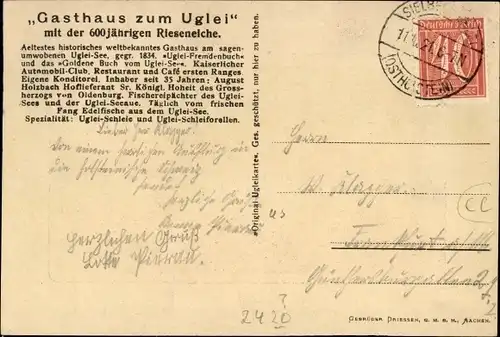 „Gasthaus zum Uglei“
mit der 600jährigen Rieseneiche.
Aeltestes historisches weltbekanntes Gasthaus am sagen-
umwobenen Uglei-See, gegr. 1834. »Uglei-Fremdenbuch«
und das »Goldene Buch vom Uglei-See«. Kaiserlicher
Automobil-Club. Restaurant und Café ersten Ranges
Eigene Konditorei. Inhaber seit 35 Jahren: August
Holzbach Hoflieferant Sr. Königl. Hoheit des Gross-
herzogs von Oldenburg. Fischereipächter des Uglei-
Sees und der Uglei-Seeaue. Täglich vom frischen
Fang Edelfische aus dem Uglei-See.
Spezialität: Uglei-Schleie und Uglei-Schleiforellen.
Lieber Herr Klapper.
Von einem herrlichen Ausflug in
die Holsteinische Schweiz
sendet
herzliche Grüße
herzlichen Gruß
Lotte Pieran.
»Original-Ugleikarte«. Ges. geschützt, nur hier zu haben.
Deutsches Reich
(OSTHOLSTEIN)
Herrn
W. Klapper
CL
2420
GEBRÜDER DRIESSEN, G. M. B. H., AACHEN.